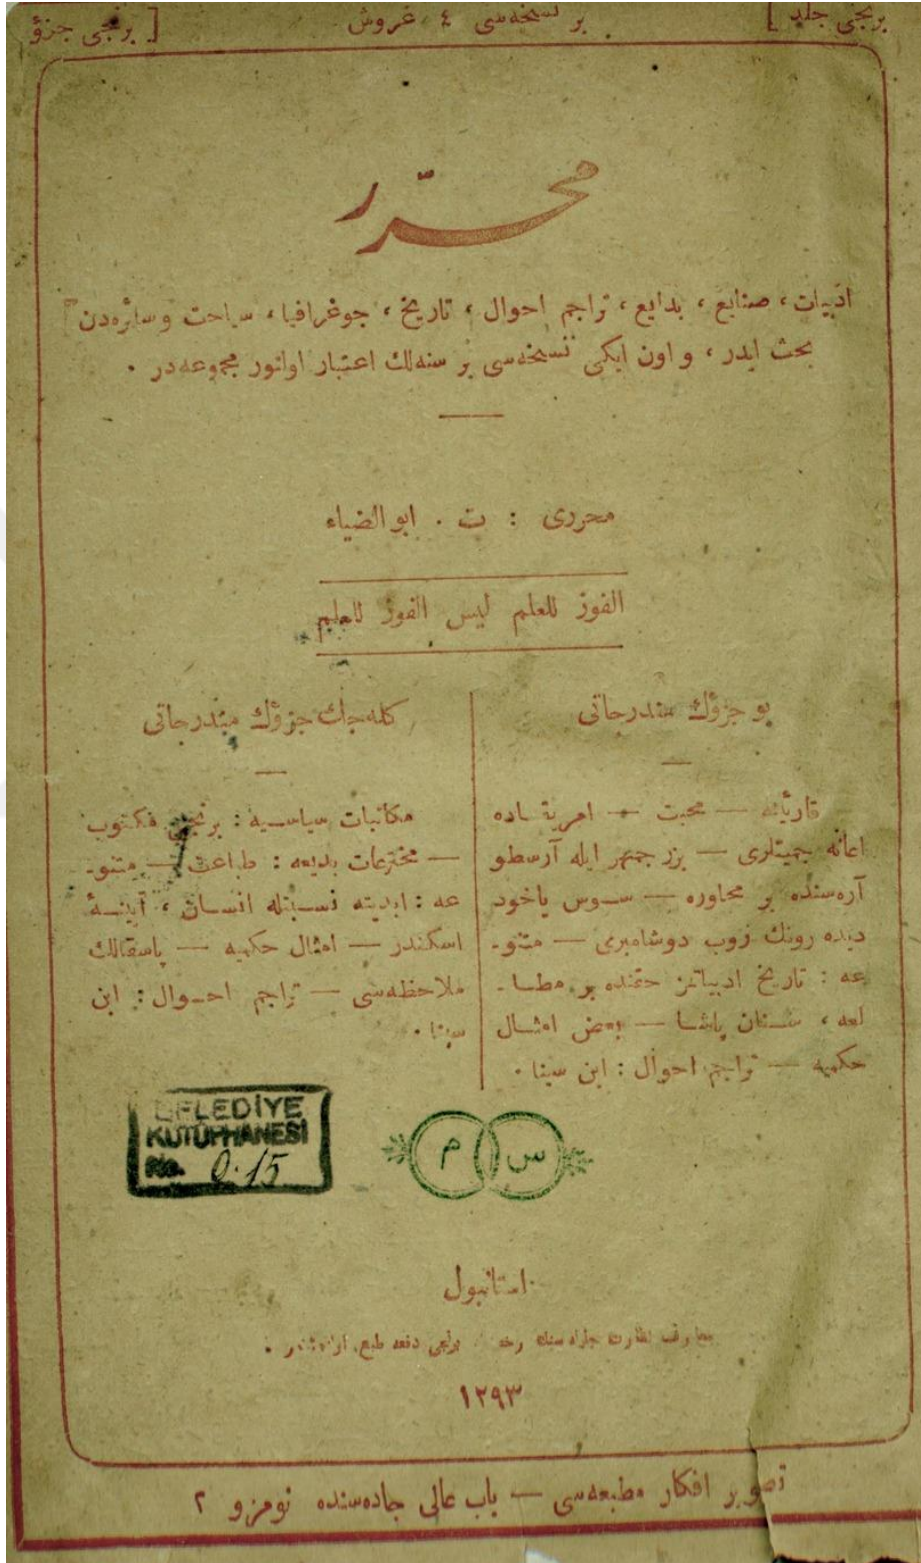 برنجى جلد ] بر نسخه‌سى ٤ غروش [ برنجى جزؤ
محرّر
ادبيات ، صنايع ، بدايع ، تراجم احوال ، تاريخ ، جوغرافيا ، سياحت و سائره‌دن
بحث ايدر ، و اون ايكى نسخه‌سى بر سنه‌لك اعتبار اولنور مجموعه‌در ٠
محررى : ت ٠ ابوالضياء
الفوز للعلم ليس الفوز للعلم
بو جزؤك مندرجاتى
قارئينه — محبت — امريقاده
اعانه جمعيتلرى — بزرجمهر ايله آرسطو
آره‌سنده بر محاوره — سوس ياخود
ديده رونك زوب دوشامبرى — متنو-
عه : تاريخ ادبياتمز حقنده بر مطا-
لعه ، سنان پاشا — بعض امثال
حكميه — تراجم احوال : ابن سينا ٠
كله‌جك جزؤك مندرجاتى
مكاتبات سياسيه : برنجى مكتوب
— مخترعات بديعه : طباعت — متنو-
عه : ابديته نسبتله انسان ، آيينهٔ
اسكندر — امثال حكميه — پاسقالك
ملاحظه‌سى — تراجم احوال : ابن
سينا ٠
BELEDİYE
KÜTÜPHANESİ
No. 0.15
م س
استانبول
معارف نظارت جليله‌سنك برنجى دفعه طبع اولنمشدر ٠
١٢٩٣
تصوير افكار مطبعه‌سى — باب عالى جاده‌سنده نومرو ٢